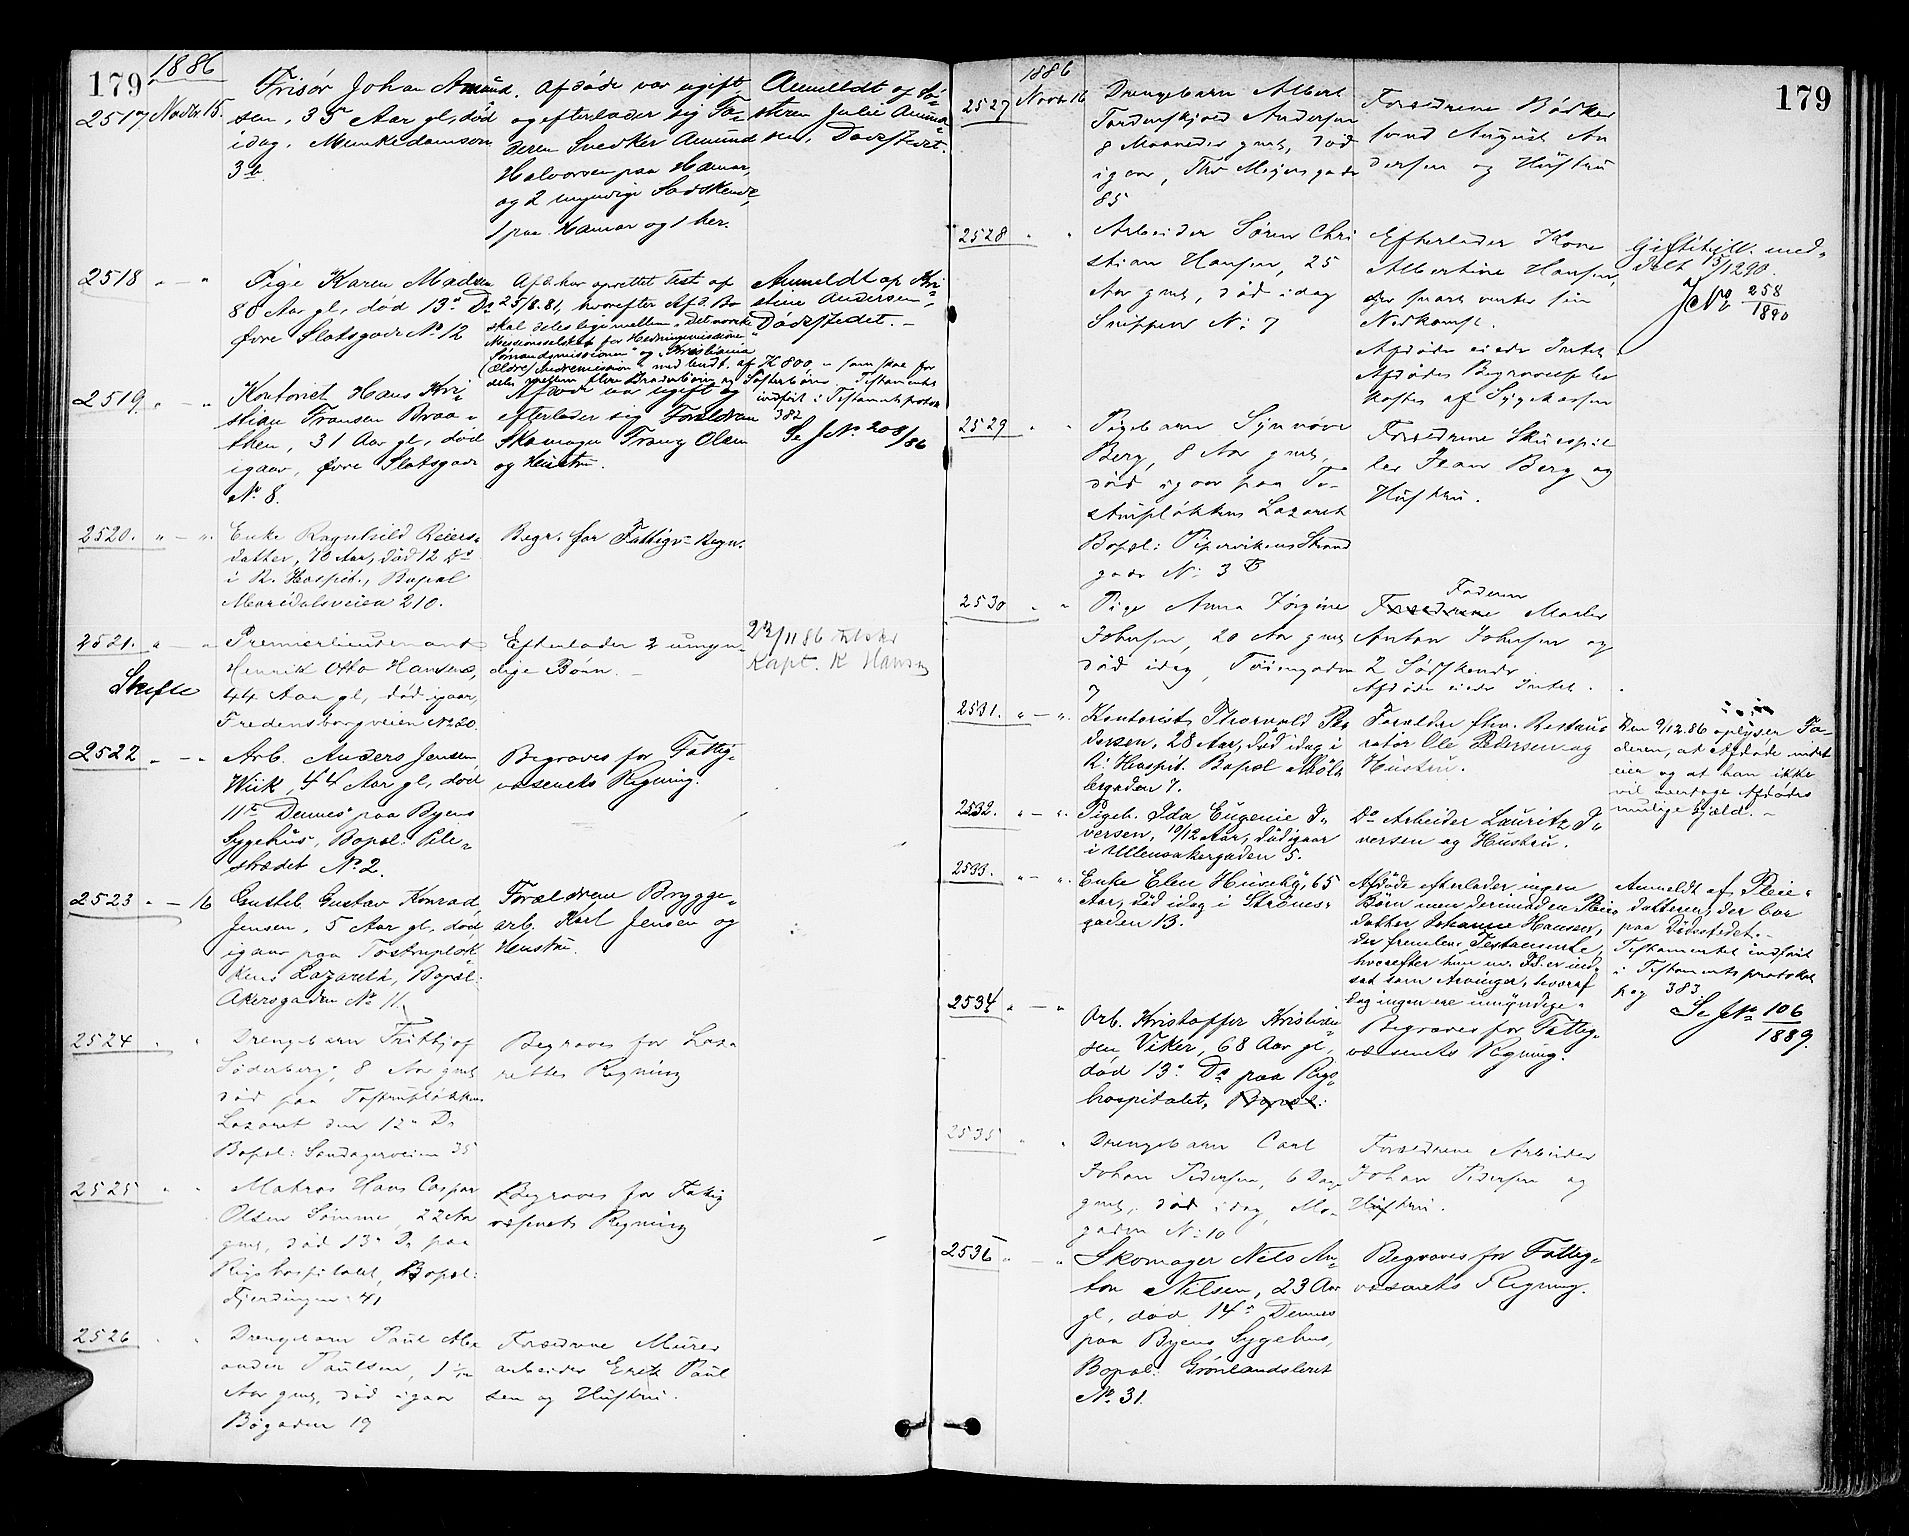 179
1886
2517 Novbr 15.
Frisør Johan Amund.
sen, 35 Aar gl, død
idag, Munkedamsvn
3b.
Afdøde var ugift
og efterlader sig Fa-
deren Snedker Amund
Halvorsen paa Hamar,
og 2 myndige Sødskende,
1 paa Hamar og 1 her.
Anmeldt af Sø-
steren Julie Amund
sen, Dødsstedet.
2518 " — "
Pige Karen Madsen
80 Aar gl, død 13de Ds
Øvre Slotsgade No 12
Afd. har oprettet Test. af
25/8.81, hvorefter Afd. Bo
skal deles lige mellem "Det norske
Missionsselskab for Hedningemissionen"
Anmeldt af Kri-
stine Andersen,
Dødsstedet. —
2519 " — "
Kontorist Hans Kri-
stian Fransen Braa-
then, 31 Aar gl, død
igaar, Øvre Slotsgade
No 8.
Afdøde var ugift og
efterlader sig Forældrene
Skomager Franz Olsen
og Hustru.
382
Se JNo 208/86
2520. " — ".
Enke Ragnhild Reiers-
datter, 70 Aar, død 12 Ds
i R. Hospit., Bopæl
Maridalsveien 210.
Begr. for Fattigv. Regn.
2521. " — "
Skifte
Premierlieutenant
Henrik Otto Hansen,
44 Aar gl, død igaar,
Fredensborgveien No 20.
Efterlader 2 umyn-
dige Børn. —
Kapt. K Hansen
2522 " — "
Arb. Anders Jensen
Wiik, 44 Aar gl, død
11te Dennes paa Byens
Sygehus, Bopæl: Pile-
strædet No 2.
Begraves for Fattig-
væsenets Regning.
2523 " — 16
Guttb. Gustav Konrad
Jensen, 5 Aar gl, død
igaar paa Tostrupløk-
kens Lazareth, Bopæl:
Akersgaden No 11.
Forældrene Brygge-
arb. Karl Jensen og
Hustru.
2524 " "
Drengebarn Fritthjof
Søderberg, 8 Aar gml
død paa Tostrupløkkens
Lazaret den 12te Ds
Bopæl: Sandagerveien 35
Begraves for Laza
rettes Regning
2525 " "
Matros Hans Caspar
Olsen Sømme, 22 Aar
gml, død 13de Ds paa
Rigshospitalet, Bopæl:
Fjerdingen 41
Begraves for Fattig
væsnets Regning
2526 " "
Drengebarn Paul Alex
ander Paulsen, 1 1/12
Aar gml, død igaar
Bøgaden 19
Forældrene Murer
arbeider Erik Paul
sen og Hustru.
179
1886
2527 Novbr 16
Drengebarn Albert
Tordenskjold Andersen
8 Maaneder gml, død
igaar, Thv Meyersgade
85
Forældrene Bødker
svend August An
dersen og Hustru
2528 " "
Arbeider Søren Chri
stian Hansen, 25
Aar gml, død idag
Snippen No 7
Efterlader Kone
Albertine Hansen,
der snart venter sin
Nedkomst.
Afdøde eiede Intet.
Afdødes Begravelse be
kostes af Sygekassen
Giftetill. med-
delt 5/12 90.
JNo 258/1890
2529 " "
Pigebarn Synnøve
Berg, 8 Aar gml,
død igaar paa To-
strupløkkens Lazaret
Bopæl: Pipervikens Strand
gade No 3 B
Forældrene Skuespil
ler Jean Berg og
Hustru.
2530 " "
Pige Anna Jørgine
Johnsen, 20 Aar gml
død idag, Tøiengaden
7
Faderen
Forældrene Maler
Anton Johnsen og
2 Sødskende
Afdøde eiede Intet.
2531. " — ".
Kontorist Thorvald Pe
dersen, 28 Aar, død idag i
R. Hospit. Bopæl Møl-
lergaden 7.
Forældre fhv. Restau-
ratør Ole Pedersen og
Hustru.
Den 9/12.86 oplyser Fa-
deren, at Afdøde intet
eier og at han ikke
vil overtage Afdødes
mulige Gjæld. —
2532. " — ".
Pigeb. Ida Eugenie I-
versen, 10/12 Aar, død igaar
i Ullensakergaden 5.
Do Arbeider Lauritz I-
versen og Hustru.
2533. " — ".
Enke Elen Huseby, 65
Aar, død idag i Strøms-
gaden 13.
Afdøde efterlader ingen
Børn men derimod en Pleie
datter Johanne Hansen,
der fremlev. Testamente,
hvorefter hun m. Fl. er ind-
sat som Arvinger, hvoraf
dog ingen ere umyndige.
Anmeldt af Pleie-
datteren, der bor
paa Dødsstedet. —
Testamentet indført
i Testamentsprotokol
pag 383
Se JNo 106/1889.
2534 " — "
Arb. Kristoffer Kristian
sen Viker, 68 Aar gl,
død 13de Ds paa Rigs-
hospitalet, Bopæl:
Begraves for Fattig-
væsenets Regning.
2535 " "
Drengebarn Carl
Johan Pedersen, 6 Dage
gml, død idag, Mo-
gaden No 10
Forældrene Arbeider
Johan Pedersen og
Hustru.
2536 " — "
Skomager Nels An-
ton Nilsen, 23 Aar
gl, død 14de Dennes
paa Byens Sygehus,
Bopæl: Grønlandsleret
No 31.
Begraves for Fattig-
væsenets Regning.